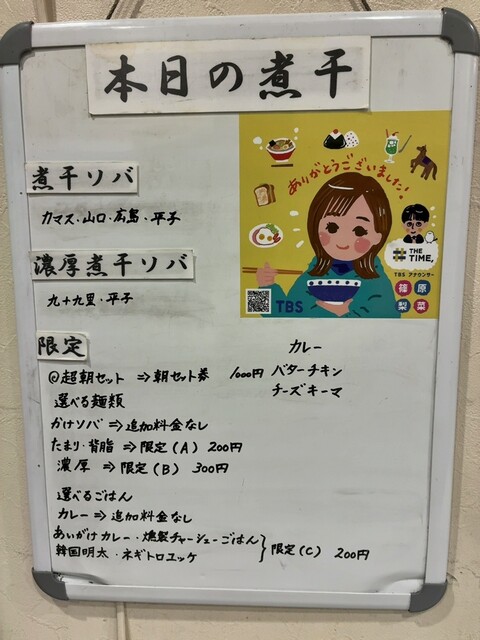 本日の煮干
煮干ソバ
カマス・山口・広島・平子
濃厚煮干ソバ
九十九里・平子
ありがとうございました!
# THE TIME,
TBS アナウンサー
篠原
梨菜
TBS
限定
カレー
@超朝セット ⇒朝セット券 1000円 バターチキン
選べる麺類 チーズキーマ
かけソバ⇒追加料金なし
たまり・背脂 ⇒限定(A) 200円
濃厚 ⇒限定(B) 300円
選べるごはん
カレー⇒追加料金なし
あいがけカレー・燻製チャーシューごはん
韓国明太・ネギトロユッケ } 限定(C) 200円